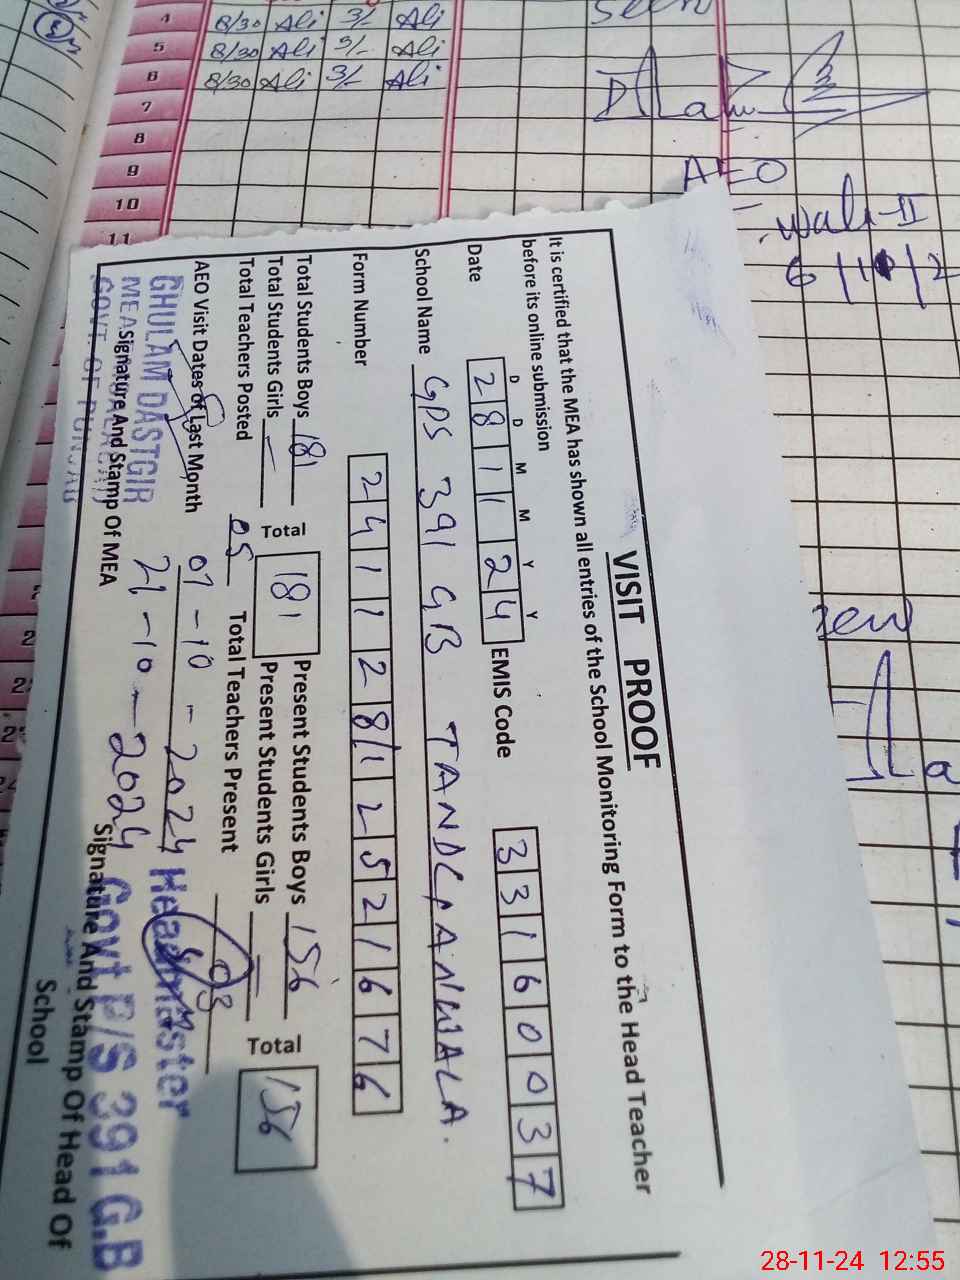 4 8/30 Ali 3/- Ali
5 8/30 Ali 3/- Ali
6 8/30 Ali 3/- Ali
7
8
9
10
11
Seen
AEO
6/11/2
VISIT PROOF
It is certified that the MEA has shown all entries of the School Monitoring Form to the Head Teacher
before its online submission
D D M M Y Y
Date 2 8 1 1 2 4 EMIS Code 3 3 1 6 0 0 3 7
School Name GPS 391 GB TANDLAANWALA.
Form Number 2 4 1 1 2 8 1 2 5 2 1 6 7 6
Total Students Boys 181 Total 181 Present Students Boys 156 Total 156
Total Students Girls — Present Students Girls —
Total Teachers Posted 05 Total Teachers Present 03
AEO Visit Dates of Last Month 07-10-2024
21-10-2024
GHULAM DASTGIR
MEA
GOVT. OF PUNJAB
Signature And Stamp Of MEA
Headmaster
Govt P/S 391 G.B
Signature And Stamp Of Head Of
School
28-11-24 12:55